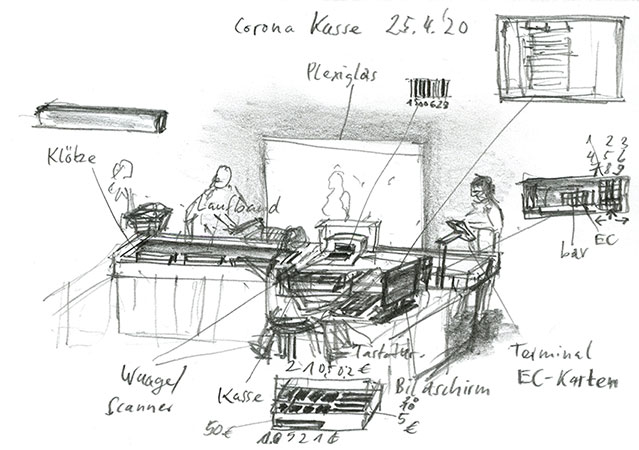 Corona Kasse 25.4.'20
Plexiglas
Klötze
Laufband
1 2 3
4 5 6
7 8 9
EC
bar
Waage/
Scanner
Kasse
Tastatur
Bildschirm
Terminal
EC-Karten
50€
5
€
10